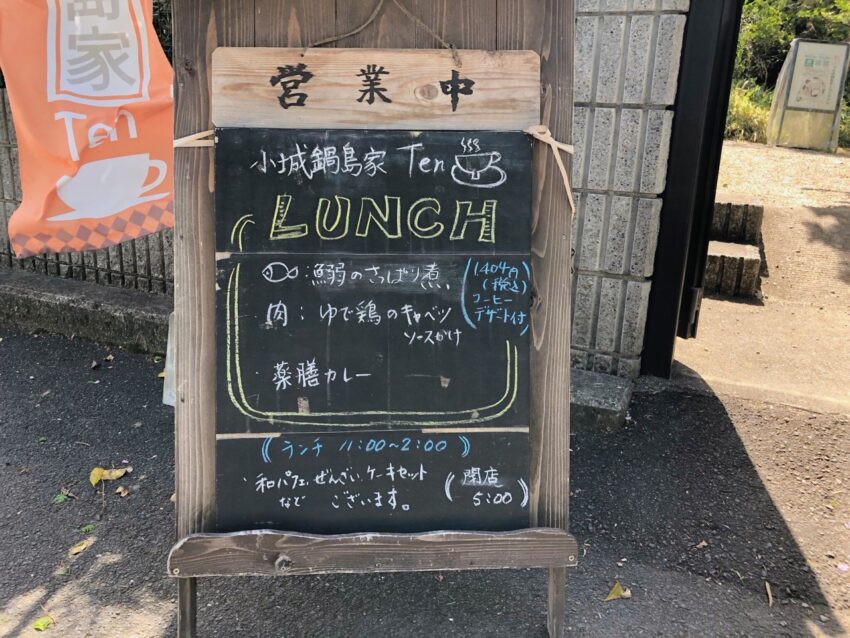 島家
Ten
営業中
小城鍋島家 Ten
LUNCH
：鰯のさっぱり煮
肉：ゆで鶏のキャベツ
ソースかけ
(1404円
(税込)
コーヒー
デザート付)
薬膳カレー
《ランチ 11:00～2:00》
・和パフェ、ぜんざい、ケーキセット
などございます。
(閉店
5:00)